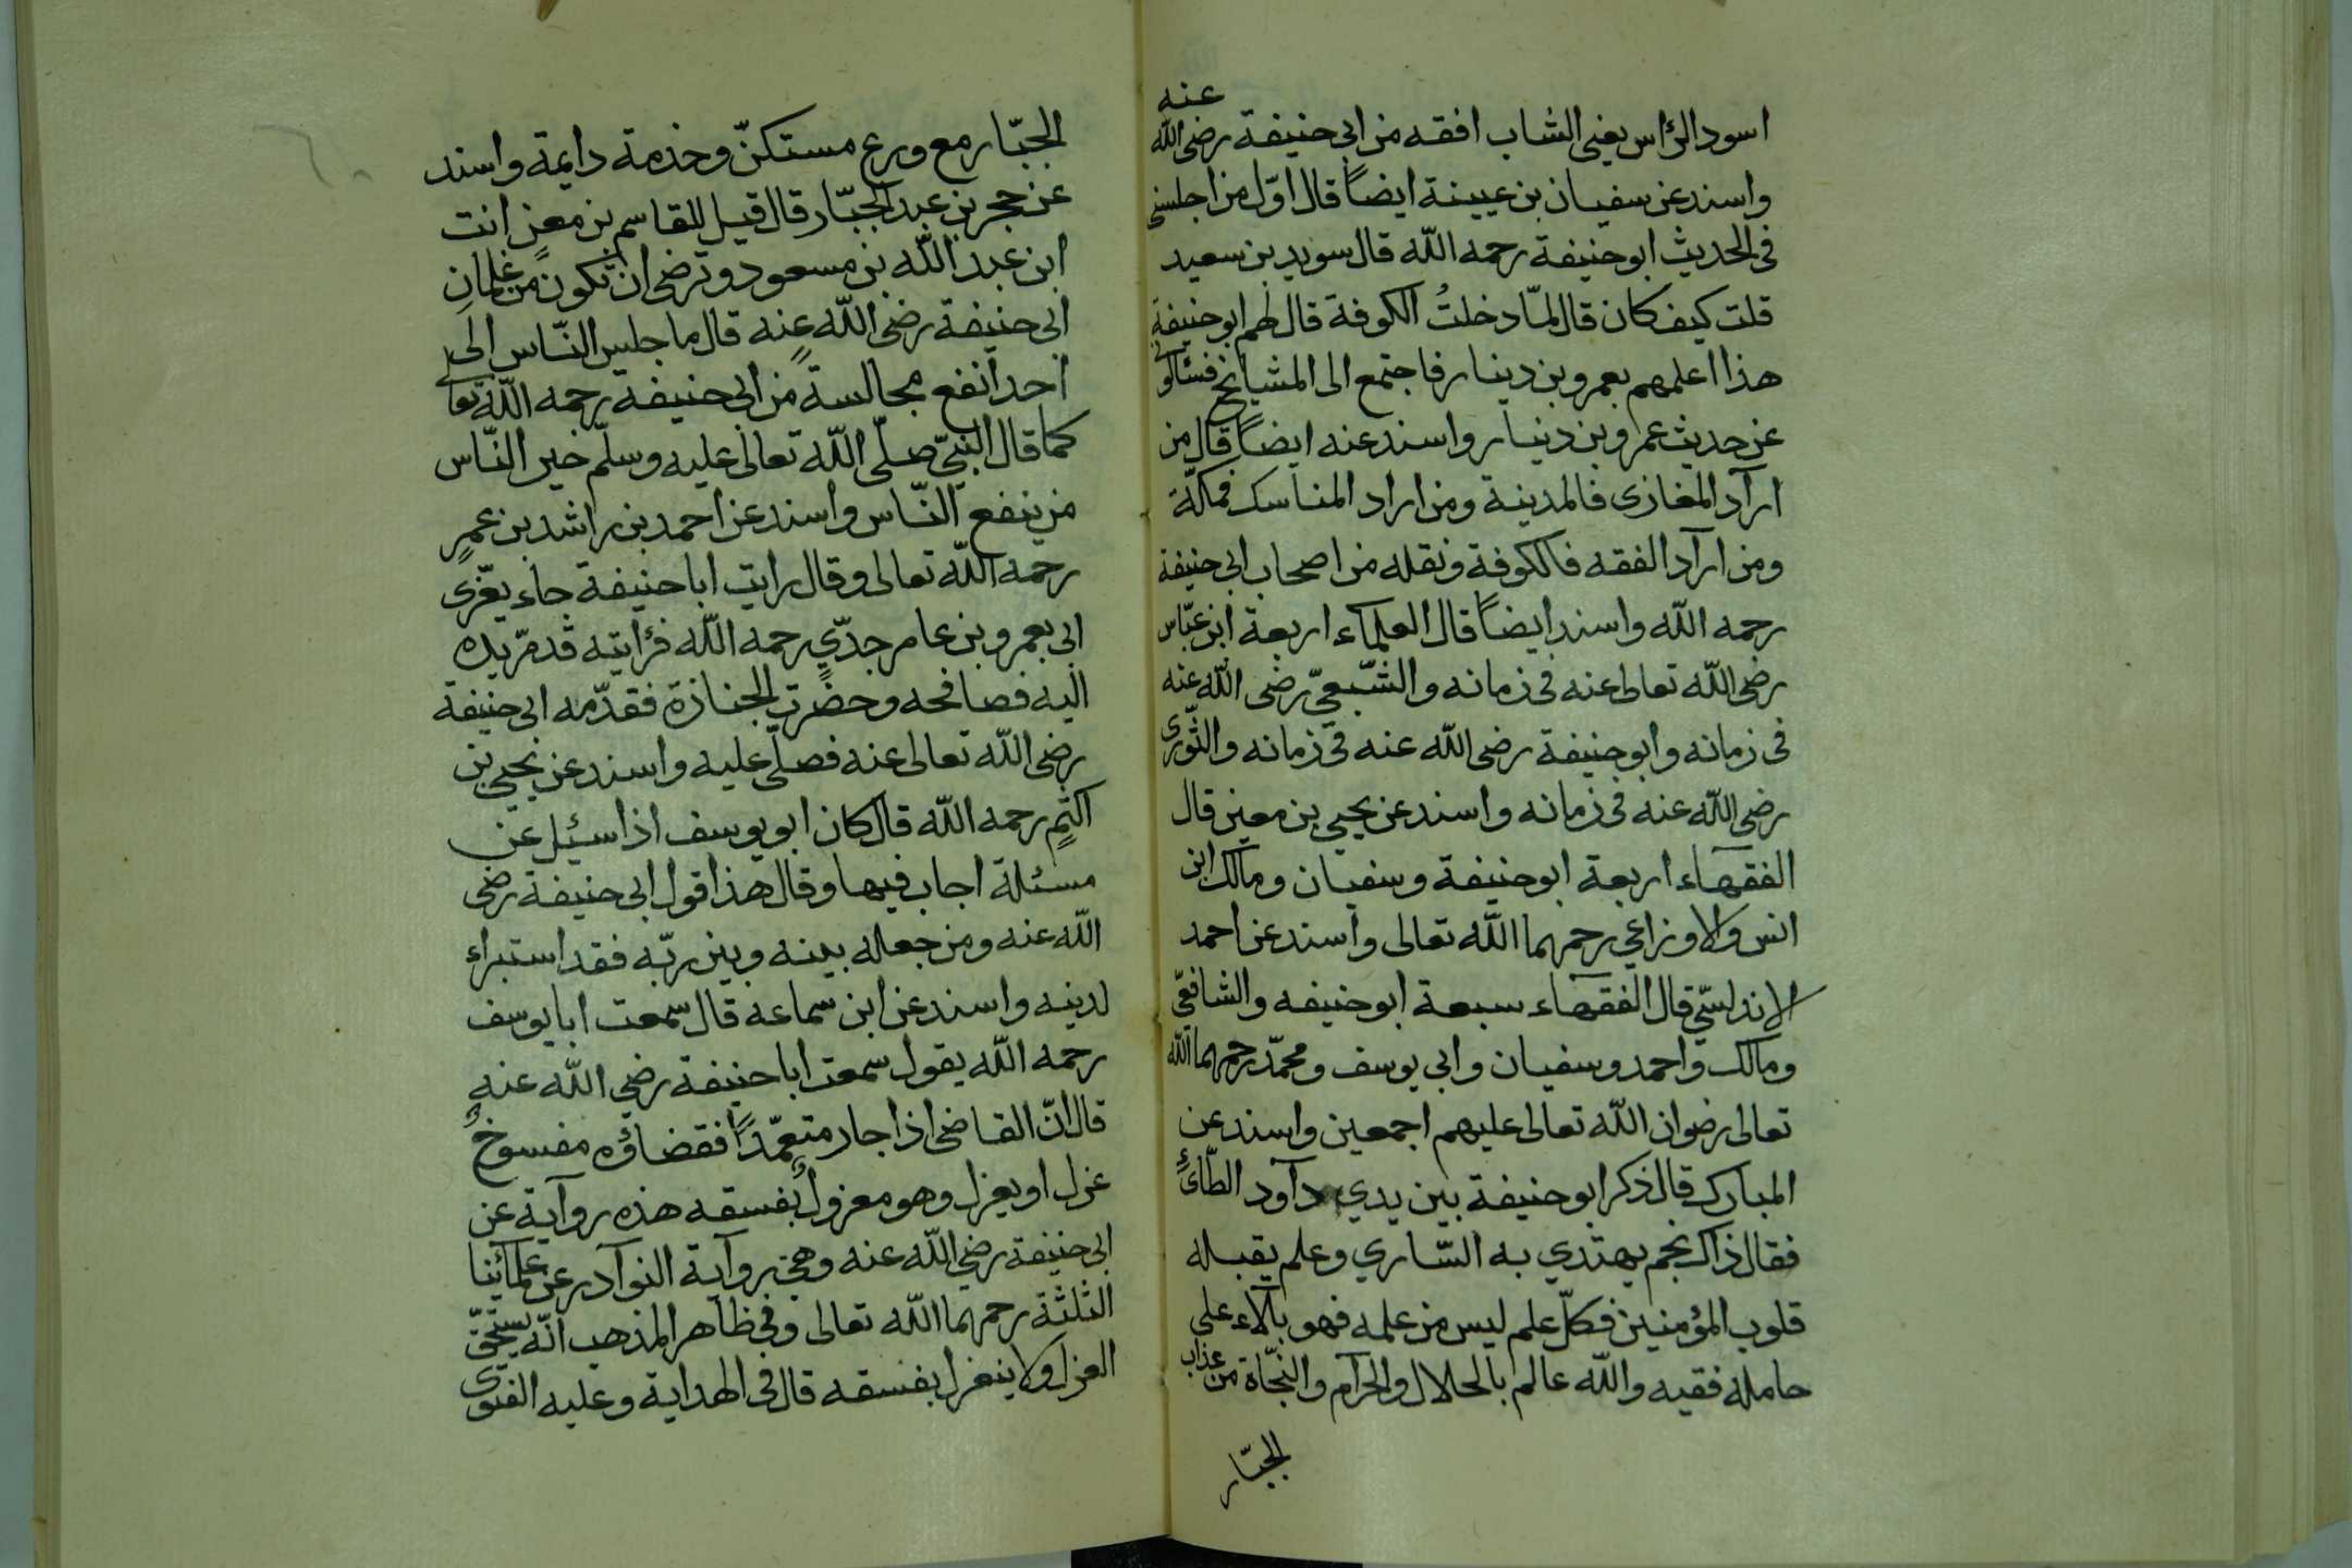 اسود الرٔاس يعنى الشاب افقه من ابى حنيفة رضى الله عنه
واسند عن سفيان بن عيينة ايضاً قال اوّل من اجلسنى
فى الحديث ابو حنيفة رحمه الله قال سويد بن سعيد
قلت كيف كان قال لمّا دخلتُ الكوفة قال لهم ابو حنيفة
هذا اعلمهم بعمرو بن دينار فاجتمع الى المشايخ فسئالونى
عن حديث عمرو بن دينار واسند عنه ايضاً قال من
ارآد المغازى فالمدينة ومن اراد المناسك فمكّة
ومن ارآد الفقه فالكوفة ونقله من اصحاب ابى حنيفة
رحمه الله واسند ايضاً قال العلمآء اربعة ابن عبّاس
رضى الله تعالى عنه فى زمانه والشّعبىّ رضى الله عنه
فى زمانه وابو حنيفة رضى الله عنه فى زمانه والثّورى
رضى الله عنه فى زمانه واسند عن يحيى بن معين قال
الفقهاء اربعة ابو حنيفة وسفيان ومالك ابن
انس والاوزاعي رحمهما الله تعالى واسند عن احمد
الاندلسّي قال الفقهاء سبعة ابو حنيفه والشافعّي
ومالك واحمد وسفيان وابى يوسف ومحمّد رحمهما الله
تعالى رضوان الله تعالى عليهم اجمعين واسند عن
المبارك قال ذكر ابو حنيفة بين يدي دآود الطّائىٍّ
فقال ذاك نجم يهتدي به السّاري وعلم يقبله
قلوب المؤمنين فكلّ علم ليس من علمه فهو بآلاء على
حامله فقيه والله عالم بالحلال والحرآم والنّجاة من عذاب
الجبّار
الجبّار مع ورع مستكنّ وخدمة دايمة واسند
عن حجر بن عبد الجبّار قال قيل للقاسم بن معنٍ انت
ابن عبد الله بن مسعود وترضى ان تكون من غلمان
ابى حنيفة رضى الله عنه قال ما جلس النّاس الى
احدٍ انفع مجالسةً من ابى حنيفه رحمه الله تعالى
كما قال النبىّ صلّى الله تعالى عليه وسلّم خير النّاس
من ينفع النّاس واسند عن احمد بن راشد بن عمرٍ
رحمه الله تعالى وقال رايت ابا حنيفة جاء يعّزى
ابى بعمرو بن عامر جدّي رحمه الله فرٔايته قد مدّ يده
اليه فصافحه وحضرت الجنازة فقدّمه ابى حنيفة
رضى الله تعالى عنه فصلّى عليه واسند عن يحيى بن
اكثم رحمه الله قال كان ابو يوسف اذا سئيل عن
مسئلة اجاب فيها وقال هذا قول ابى حنيفة رضى
الله عنه ومن جعله بينه وبين ربّه فقد استبراء
لدينه واسند عن ابن سماعه قال سمعت ابا يوسف
رحمه الله يقول سمعت ابا حنيفة رضى الله عنه
قال انّ القاضى اذا جار متعمّداً فقضاؤه مفسوخٌ
عزل او يعزل وهو معزولٌ بفسقه هذه روآية عن
ابى حنيفة رضى الله عنه وهى روآية النوآدر عن علمائينا
الثلثة رحمهما الله تعالى وفى ظاهر المذهب انّه يستحقّ
العزل ولا ينعزل بفسقه قال فى الهداية وعليه الفتوى